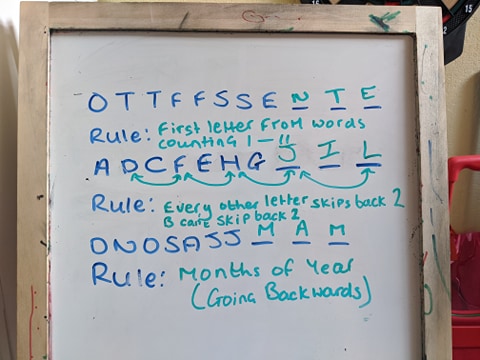 OTTFFSSE N T E
Rule: First letter from words
counting 1-11
ADCFEHG J I L
Rule: Every other letter skips back 2
B can't skip back 2
ONOSAJJ M A M
Rule: Months of Year
(Going Backwards)